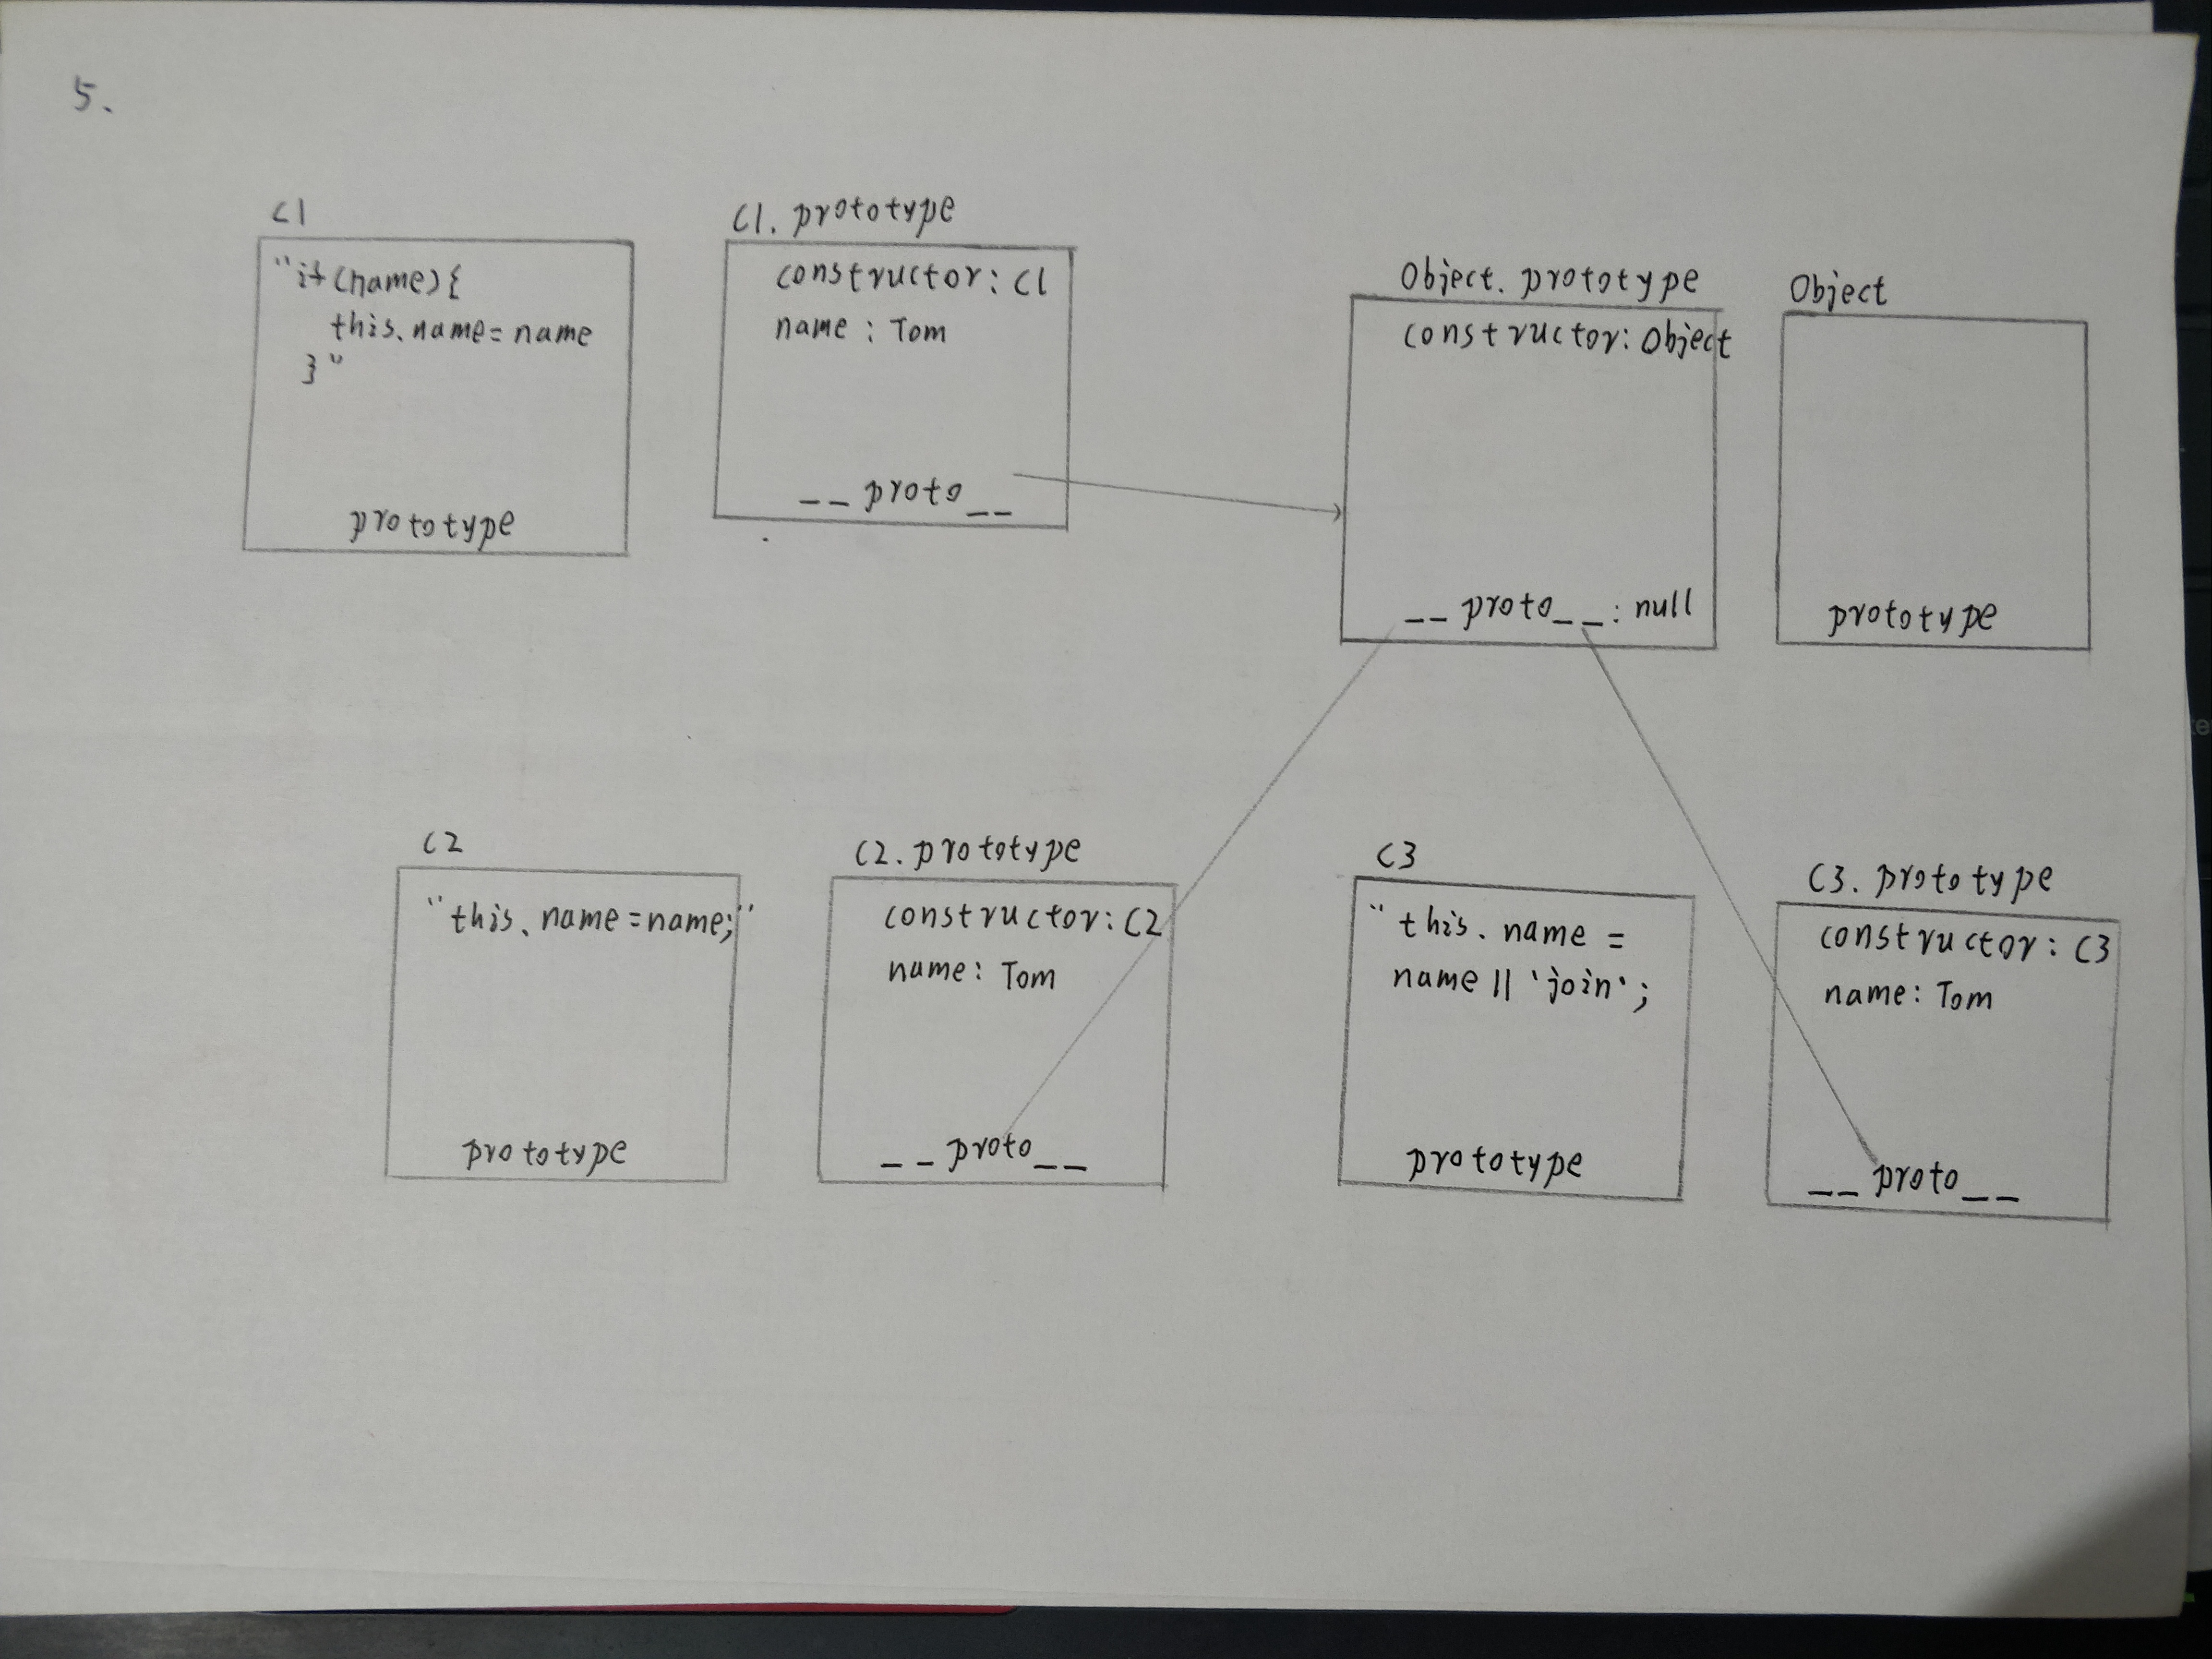 5.
C1
"if(name){
this.name=name
}"
prototype
C1.prototype
constructor: C1
name: Tom
__proto__
Object.prototype
constructor: Object
__proto__: null
Object
prototype
C2
"this.name=name;"
prototype
C2.prototype
constructor: C2
name: Tom
__proto__
C3
"this.name =
name || 'join';
prototype
C3.prototype
constructor: C3
name: Tom
__proto__